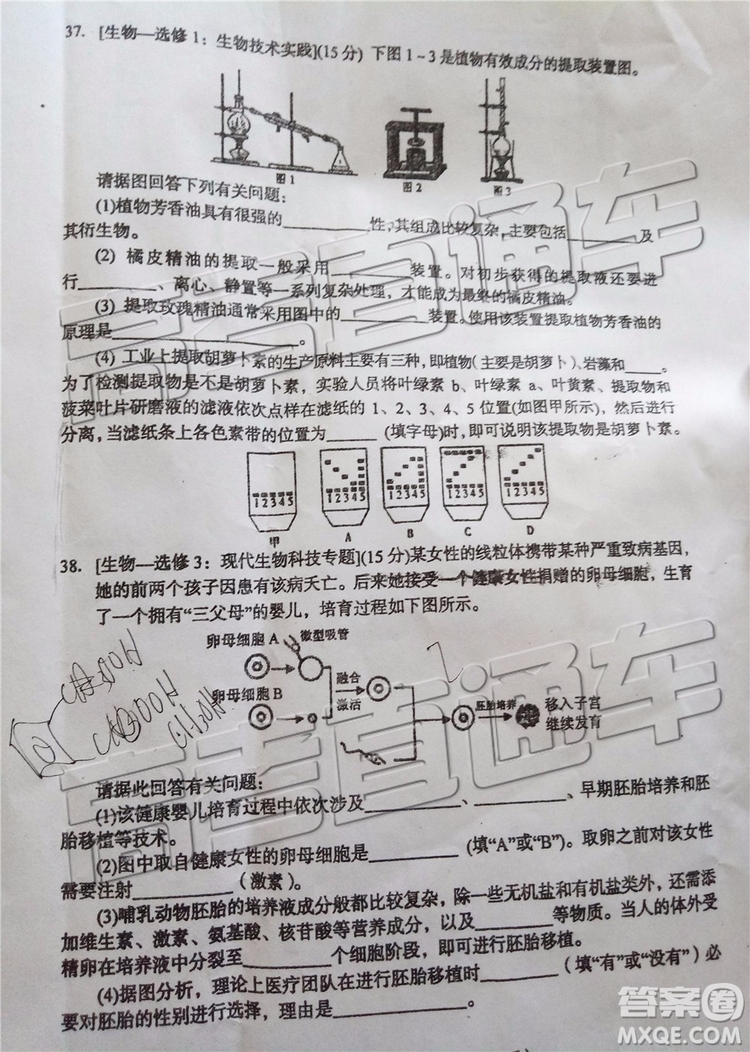 37. [生物—选修1：生物技术实践](15分) 下图1~3是植物有效成分的提取装置图。
图1
图2
图3
请据图回答下列有关问题：
(1)植物芳香油具有很强的________性，其组成比较复杂，主要包括________及
其衍生物。
(2) 橘皮精油的提取一般采用________装置。对初步获得的提取液还要进
行________、离心、静置等一系列复杂处理，才能成为最终的橘皮精油。
(3) 提取玫瑰精油通常采用图中的________装置。使用该装置提取植物芳香油的
原理是________
(4) 工业上提取胡萝卜素的生产原料主要有三种，即植物（主要是胡萝卜）、岩藻和____。
为了检测提取物是不是胡萝卜素，实验人员将叶绿素 b、叶绿素 a、叶黄素、提取物和
菠菜叶片研磨液的滤液依次点样在滤纸的 1、2、3、4、5 位置(如图甲所示)，然后进行
分离，当滤纸条上各色素带的位置为________（填字母)时，即可说明该提取物是胡萝卜素。
12345
12345
12345
12345
12345
甲
A
B
C
D
38. [生物—选修3：现代生物科技专题](15分)某女性的线粒体携带某种严重致病基因，
她的前两个孩子因患有该病夭亡。后来她接受一个健康女性捐赠的卵母细胞，生育
了一个拥有“三父母”的婴儿，培育过程如下图所示。
卵母细胞 A
微型吸管
卵母细胞 B
融合
激活
胚胎培养
移入子宫
继续发育
请据此回答有关问题：
(1)该健康婴儿培育过程中依次涉及________、________、早期胚胎培养和胚
胎移植等技术。
(2)图中取自健康女性的卵母细胞是________（填“A”或“B”）。取卵之前对该女性
需要注射________（激素）。
(3)哺乳动物胚胎的培养液成分一般都比较复杂，除一些无机盐和有机盐类外，还需添
加维生素、激素、氨基酸、核苷酸等营养成分，以及________等物质。当人的体外受
精卵在培养液中分裂至________个细胞阶段，即可进行胚胎移植。
(4)据图分析，理论上医疗团队在进行胚胎移植时________（填“有”或“没有”）必
要对胚胎的性别进行选择，理由是________。
高考直通车
高考直通车
答案圈
MXQE.COM